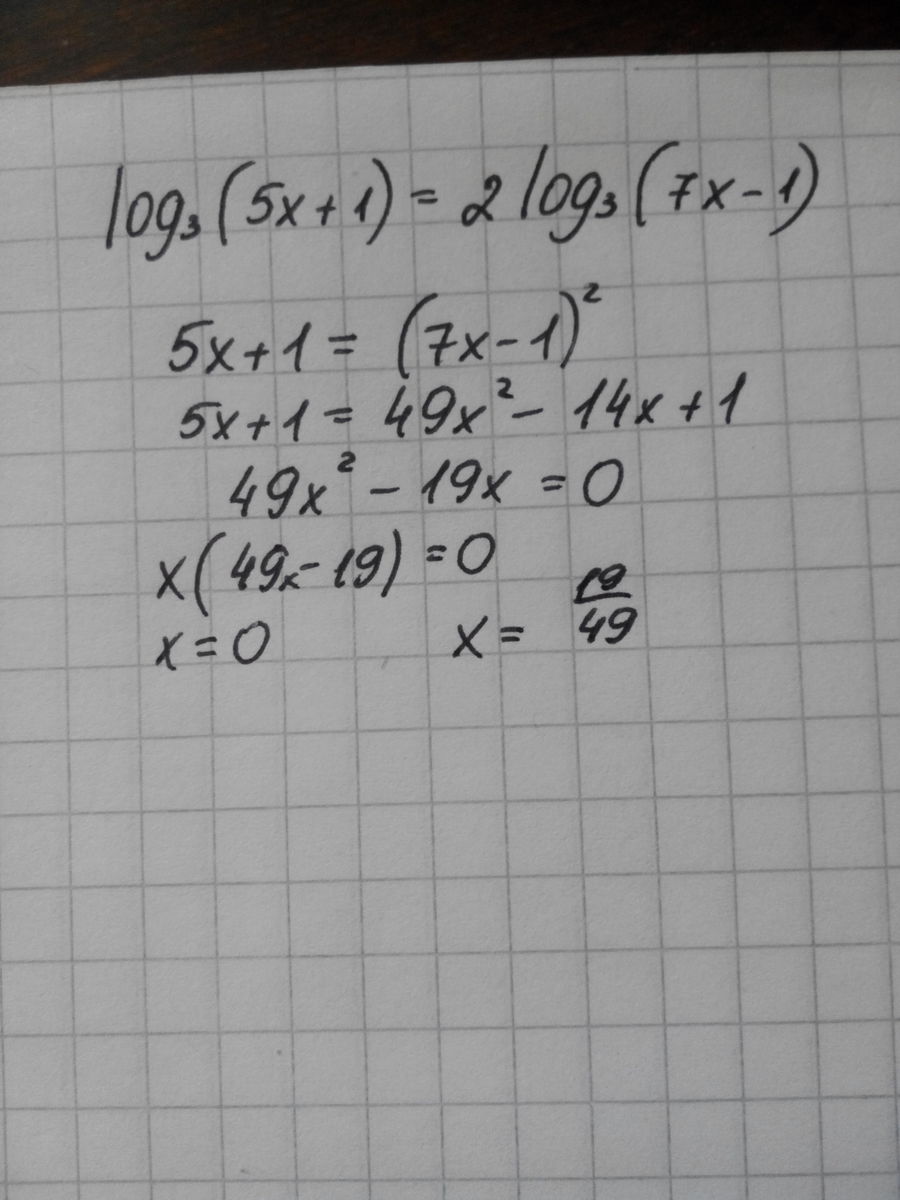 log₃(5x+1) = 2 log₃(7x-1)
5x+1 = (7x-1)²
5x+1 = 49x² - 14x + 1
49x² - 19x = 0
x(49x-19) = 0
x = 0 x = 19/49